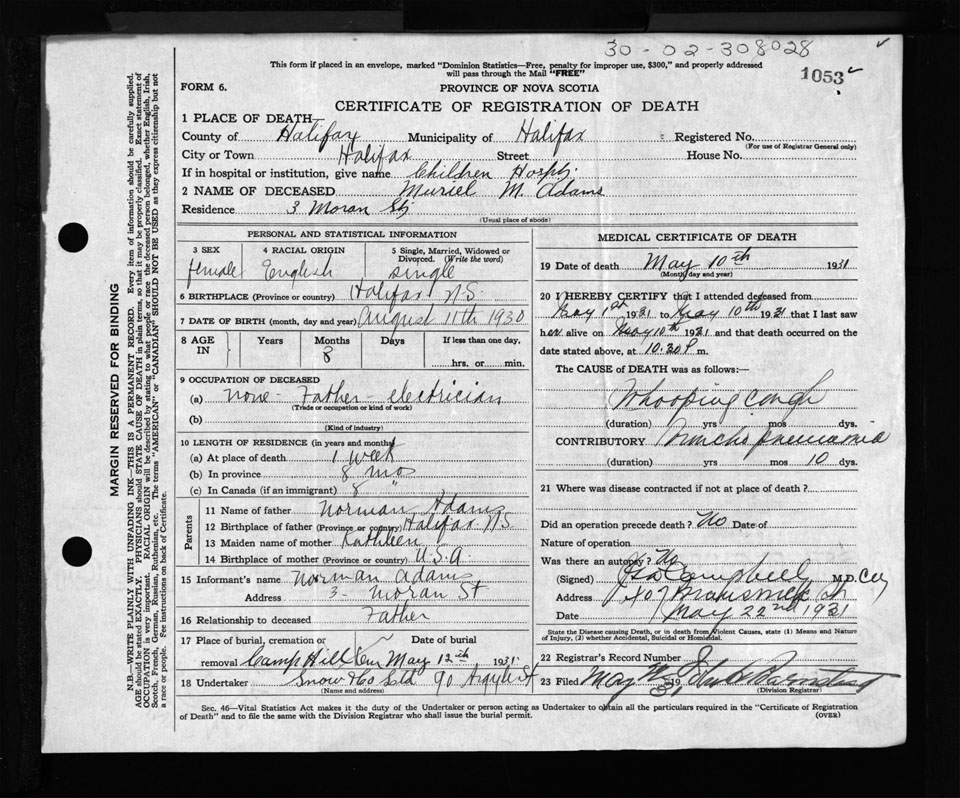 30-02-308028
This form if placed in an envelope, marked "Dominion Statistics—Free, penalty for improper use, $300," and properly addressed
will pass through the Mail "FREE"
1053
FORM 6.
PROVINCE OF NOVA SCOTIA
CERTIFICATE OF REGISTRATION OF DEATH
1 PLACE OF DEATH
County of Halifax Municipality of Halifax Registered No.
(For use of Registrar General only)
City or Town Halifax Street House No.
If in hospital or institution, give name Children Hospt.
2 NAME OF DECEASED Muriel M. Adams
Residence 3 Moran St.
(Usual place of abode)
PERSONAL AND STATISTICAL INFORMATION
3 SEX 4 RACIAL ORIGIN 5 Single, Married, Widowed or
Divorced. (Write the word)
female English single
6 BIRTHPLACE (Province or country) Halifax N.S.
7 DATE OF BIRTH (month, day and year) August 11th 1930
8 AGE IN Years Months Days If less than one day,
8 hrs. or min.
9 OCCUPATION OF DECEASED
(a) none - Father - electrician
(Trade or occupation or kind of work)
(b)
(Kind of industry)
10 LENGTH OF RESIDENCE (in years and months)
(a) At place of death 1 week
(b) In province 8 mos
(c) In Canada (if an immigrant) 8 "
Parents
11 Name of father Norman Adams
12 Birthplace of father (Province or country) Halifax N.S.
13 Maiden name of mother Kathleen
14 Birthplace of mother U.S.A.
15 Informant's name Norman Adams
Address 3- Moran St
16 Relationship to deceased Father
17 Place of burial, cremation or Date of burial
removal Camp Hill Cem May 12th 1931
18 Undertaker Snow & Co Ltd 90 Argyle St
(Name and address)
MEDICAL CERTIFICATE OF DEATH
19 Date of death May 10th 1931
(Month, day and year)
20 I HEREBY CERTIFY that I attended deceased from
May 1st 1931 to May 10th 1931 that I last saw
her alive on May 10th 1931 and that death occurred on the
date stated above, at 10.30 P. m.
The CAUSE of DEATH was as follows:—
Whooping cough
(duration) yrs mos dys.
CONTRIBUTORY Broncho pneumonia
(duration) yrs mos 10 dys.
21 Where was disease contracted if not at place of death?
Did an operation precede death? No Date of
Nature of operation
Was there an autopsy? No
(Signed) Campbell M.D.
Address 407 Brunswick St
Date May 22nd 1931
State the Disease causing Death, or in death from Violent Causes, state (1) Means and Nature
of Injury, (2) whether Accidental, Suicidal or Homicidal.
22 Registrar's Record Number
23 Filed May 19
(Division Registrar)
Sec. 46—Vital Statistics Act makes it the duty of the Undertaker or person acting as Undertaker to obtain all the particulars required in the "Certificate of Registration
of Death" and to file the same with the Division Registrar who shall issue the burial permit.
(OVER)
MARGIN RESERVED FOR BINDING
N.B.—WRITE PLAINLY WITH UNFADING INK—THIS IS A PERMANENT RECORD. Every item of information should be carefully supplied.
AGE should be stated EXACTLY. PHYSICIANS should STATE CAUSE OF DEATH in plain terms, so that it may be properly classified. Exact statement of
OCCUPATION is very important. RACIAL ORIGIN will be described by stating to what people or race the deceased person belonged, whether English, Irish,
Scotch, French, German, Russian, Ruthenian, etc. The terms "AMERICAN" or "CANADIAN" SHOULD NOT BE USED as they express citizenship but not
a race or people. See instructions on back of Certificate.